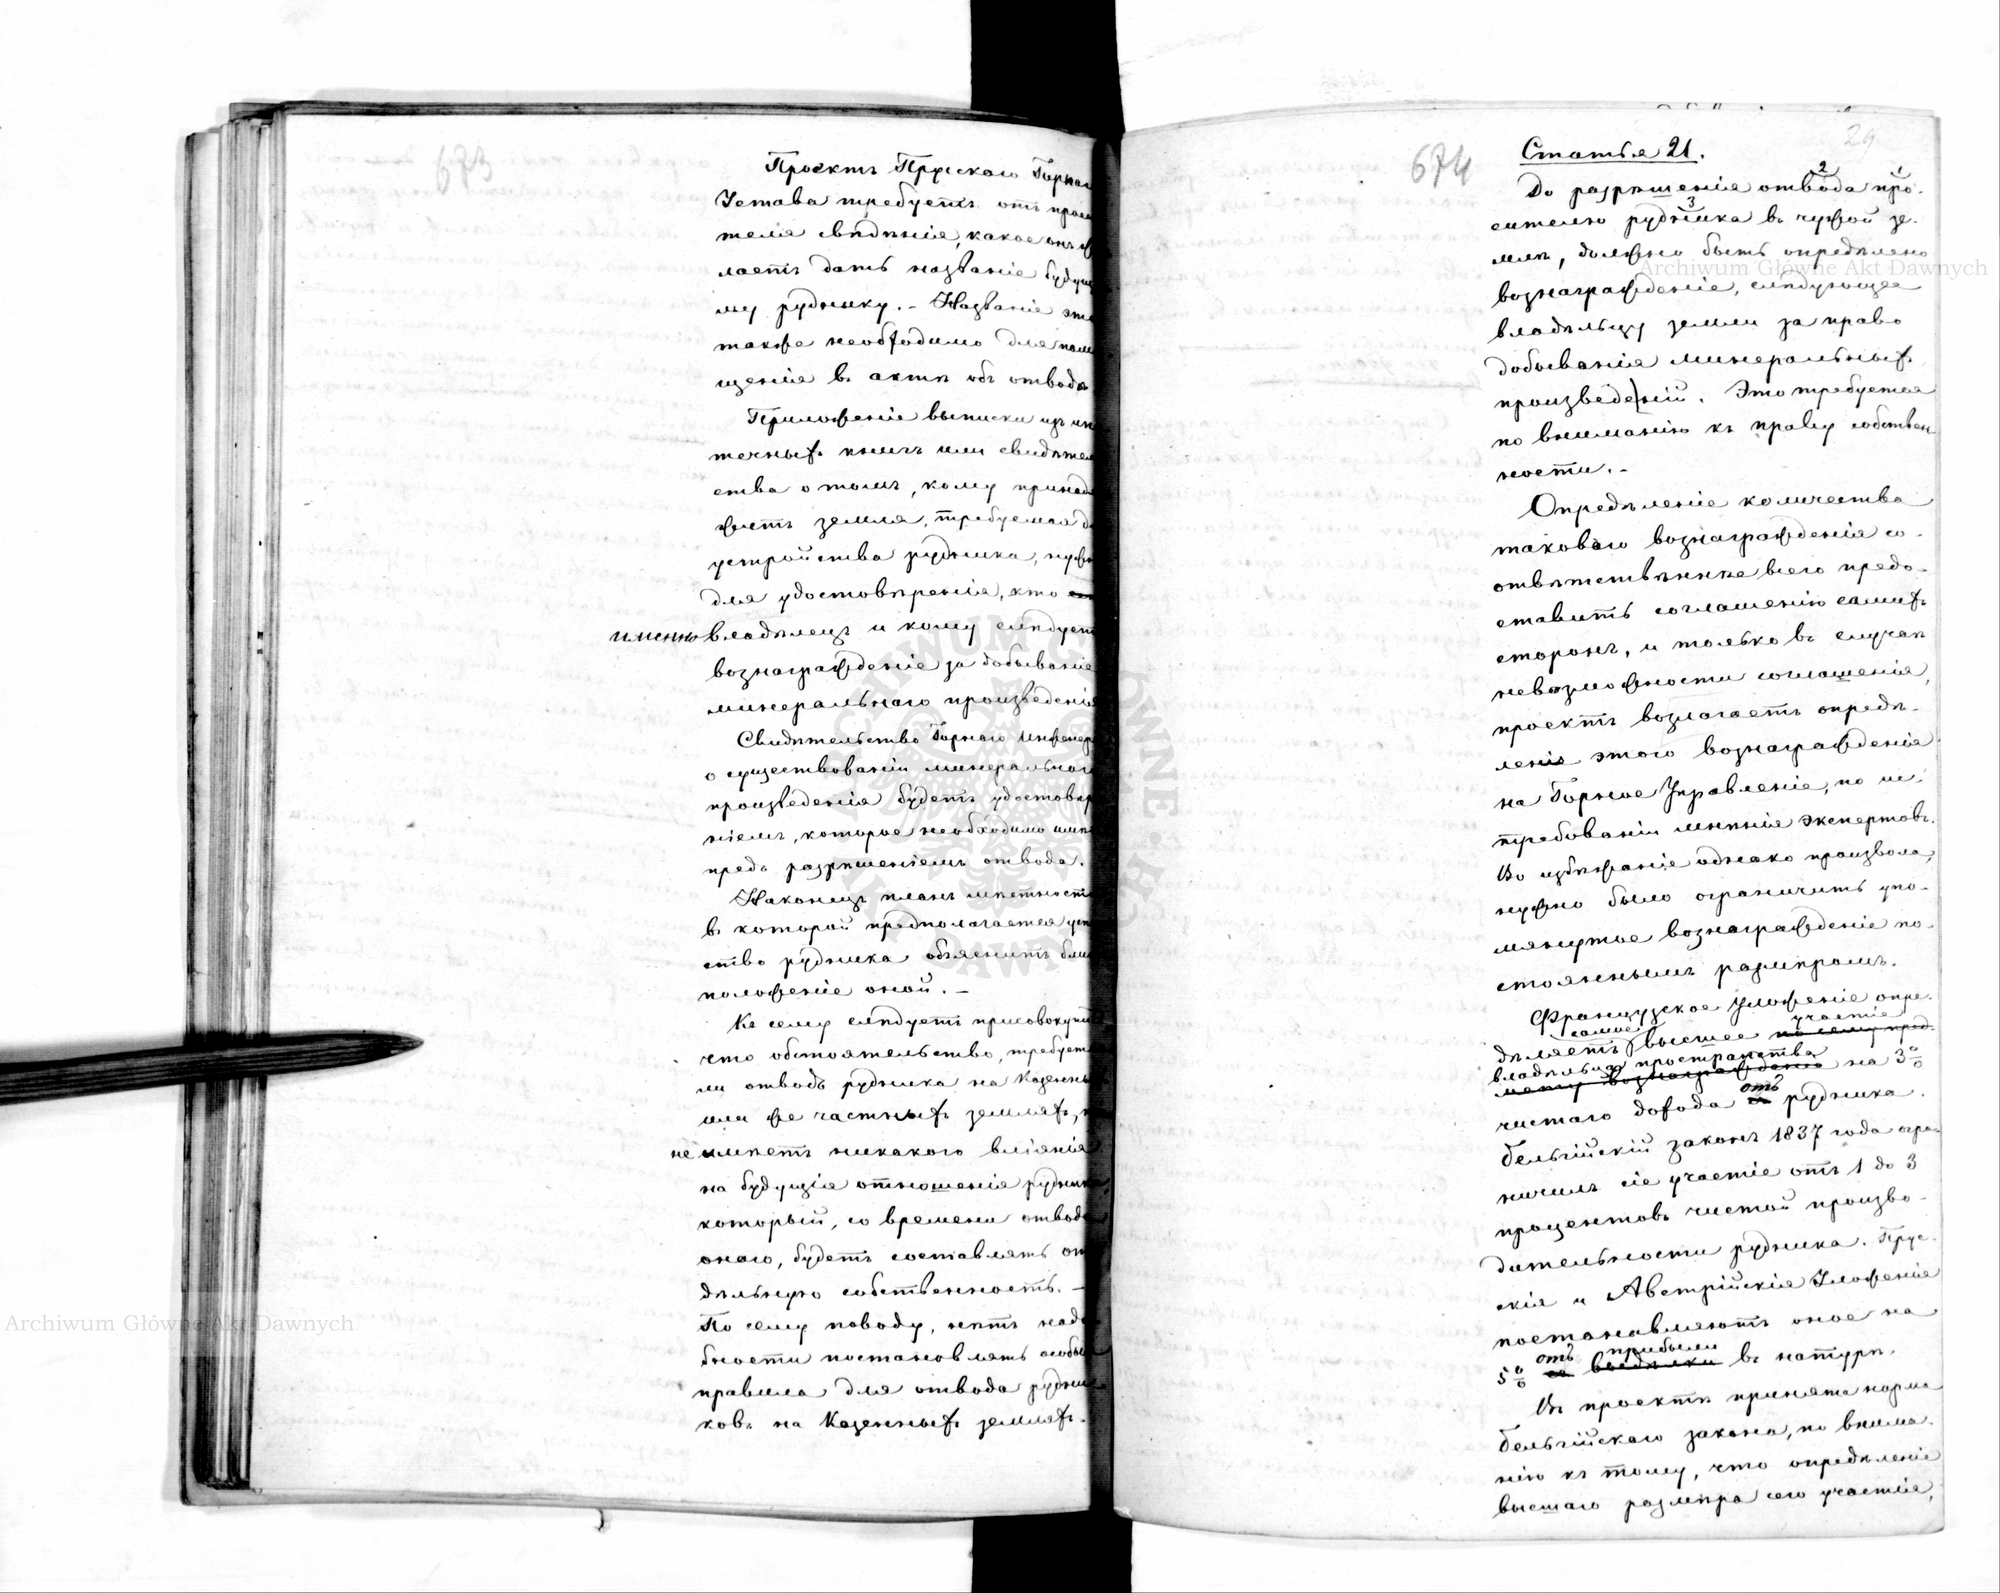 673
Проектъ Прускаго Горнаг
Устава требуетъ отъ проси
теля свѣдѣнія, какое онъ ж
лаетъ дать названіе будущ
му руднику. – Названіе это
также необходимо для помѣ
щенія въ актѣ объ отводѣ
Приложеніе выписки изъ ипо
течныхъ книгъ или свидѣтел
ства о томъ, кому принадл
житъ земля, требуемая д
устройства рудника, нужн
для удостовѣренія, кто
именно владѣлецъ и кому слѣдуетъ
вознагражденіе за добываніе
минеральнаго произведенія
Свидѣтельство Горнаго Инженер
о существованіи минеральнаго
произведенія будетъ удостовѣр
ніемъ, которое необходимо имѣ
предъ разрѣшеніемъ отвода.
Наконецъ планъ мѣстности
въ которой предполагается уст
ство рудника объяснитъ бли
положеніе оной. –
Къ сему слѣдуетъ присовокупит
что обстоятельство, требуетс
ли отводъ рудника на Казенны
или же частныхъ земляхъ, н
не имѣетъ никакого вліянія
на будущія отношенія рудника
который, со времени отвода
онаго, будетъ составлять от
дѣльную собственность. –
По сему поводу, нѣтъ надо
бности постановлять особы
правила для отвода рудни
ковъ на Казенныхъ земляхъ.
674
29
Статья 21.
2 1
До разрѣшенія отвода про-
3
сителю рудника въ чужой зе-
млѣ, должно быть опредѣлено
вознагражденіе, слѣдующее
владѣльцу земли за право
добыванія минеральныхъ
произведеній. Это требуется
по вниманію къ праву собствен-
ности. –
Опредѣленіе количества
таковаго вознагражденія со-
отвѣтственнѣе всего предо-
ставить соглашенію самихъ
сторонъ, и только въ случаѣ
невозможности соглашенія,
проектъ возлагаетъ опредѣ-
леніе этого вознагражденія
на Горное Управленіе, по ис-
требованіи мнѣнія экспертовъ.
Во избѣжаніе однако произвола,
нужно было ограничить упо-
мянутое вознагражденіе по-
стояннымъ размѣромъ.
Французское Уложеніе опре-
самое участіе
дѣляетъ высшее по сему пред-
владѣльца пространства
мету вознагражденіе на 3%
отъ
чистаго дохода рудника.
Бельгійскій законъ 1837 года огра-
ничилъ сіе участіе отъ 1 до 3
процентовъ чистой произво-
дительности рудника. Прус-
скія и Австрійскія Уложенія
постановляютъ оное на
отъ прибыли
5% въ натурѣ.
Въ проектѣ принята норма
Бельгійскаго закона, по внима-
нію къ тому, что опредѣленіе
высшаго размѣра сего участія,
Archiwum Główne Akt Dawnych
Archiwum Główne Akt Dawnych